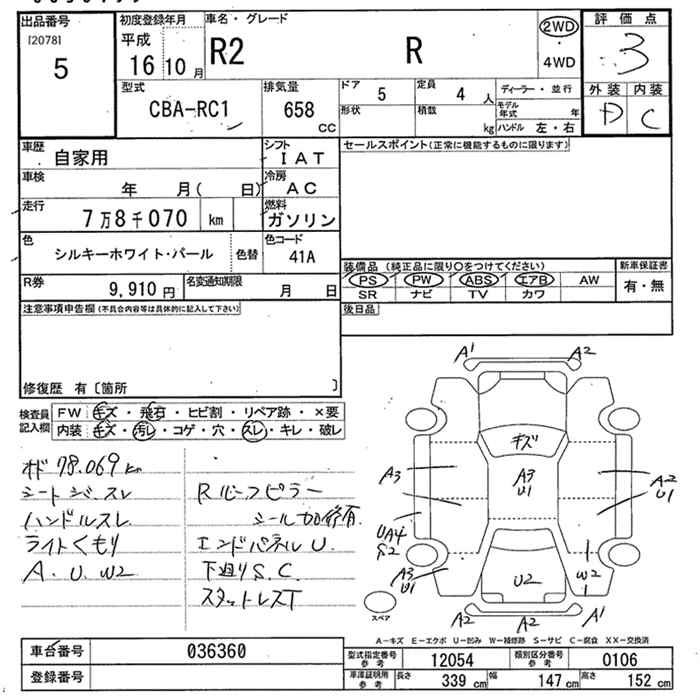 出品番号
[2078]
5
初度登録年月
平成
16 10月
車名・グレード
R2 R
2WD
・
4WD
評価点
3
外装 内装
D C
型式
CBA-RC1
排気量
658
CC
ドア 5
形状
定員 4 人
積載 kg
ディーラー・並行
モデル年式 年
ハンドル 左・右
車歴 自家用
シフト IAT
車検 年 月( 日)
冷房 AC
走行 7万8千070 km
燃料 ガソリン
色 シルキーホワイト・パール 色替
色コード 41A
R券 9,910 円
名変通知期限 月 日
セールスポイント(正常に機能するものに限ります)
装備品(純正品に限り○をつけてください)
PS PW ABS エアB AW
SR ナビ TV カワ
新車保証書
有・無
後日品
注意事項申告欄(不具合内容等は具体的に記入して下さい)
修復歴 有〔箇所 〕
検査員記入欄
FW キズ・飛石・ヒビ割・リペア跡・×要
内装 キズ・汚レ・コゲ・穴・スレ・キレ・破レ
オド 78.069 km
シートシミ、スレ
ハンドルスレ
ライトくもり
A. U. W2
Rルーフピラー
シール加修有.
エンドパネルU.
下廻りS.C.
スタットレスT
A1 A2
キズ
A3
A3
U1
A2
U1
UA4
S2
A3
U1
W2
U2
A2 A2 A1
スペア
A-キズ E-エクボ U-凹み W-補修跡 S-サビ C-腐食 XX-交換済
車台番号 036360
登録番号
型式指定番号 参考 12054
類別区分番号 参考 0106
車庫証明用 参考
長さ 339 cm
幅 147 cm
高さ 152 cm